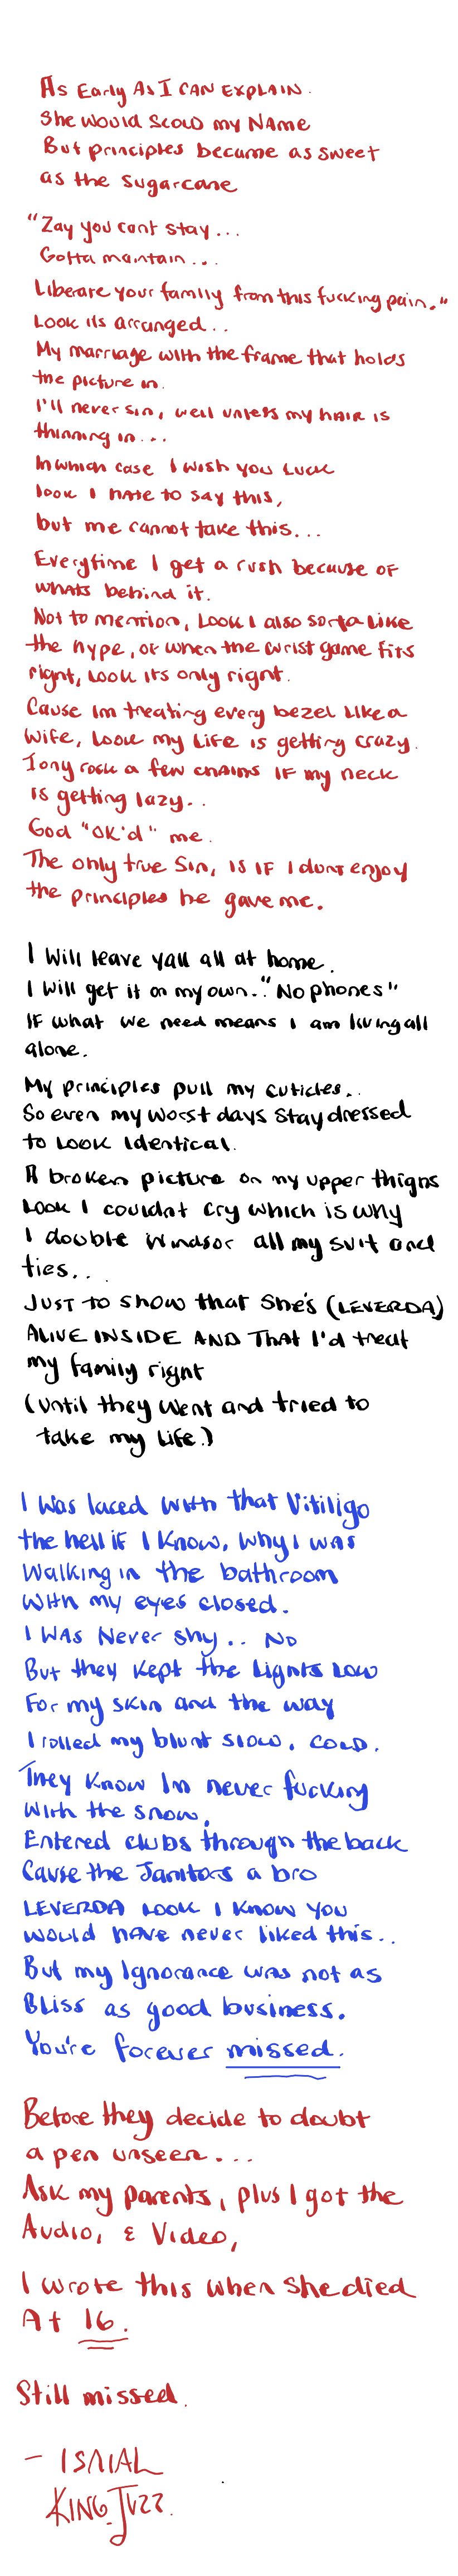 As Early As I CAN EXPLAIN.
She would scold my NAMe
But principles became as sweet
as the sugarcane
"Zay you cant stay...
Gotta maintain...
Liberate your family from this fucking pain."
Look its arranged...
My marriage with the frame that holds
the picture in.
I'll never sin, well unless my HAIR is
thinning in...
In which case I wish you Luck
look I hate to say this,
but me cannot take this...
Everytime I get a rush because of
whats behind it.
Not to mention, Look I also sorta Like
the hype, or when the wrist game fits
right, Look its only right.
Cause Im treating every bezel Like a
Wife, Look my Life is getting crazy.
I only rock a few chains IF my neck
is getting lazy..
God "OK'd" me.
The only true Sin, is IF I dont enjoy
the principles he gave me.
I will leave yall all at home.
I will get it on my own. "No phones"
IF what we need means I am living all
alone.
My principles pull my cuticles..
So even my worst days stay dressed
to Look Identical.
A broken picture on my upper thighs
Look I couldnt cry which is why
I double Windsor all my suit and
ties...
JUST to show that She's (LEVERDA)
ALIVE INSIDE AND That I'd treat
my family right
(until they went and tried to
take my Life.)
I was laced with that Vitiligo
the hell if I know, why I was
Walking in the bathroom
With my eyes closed.
I WAS Never shy.. No
But they kept the Lights Low
For my skin and the way
I rolled my blunt slow, COLD.
They know Im never fucking
With the snow,
Entered clubs through the back
Cause the Janitors a bro
LEVERDA Look I know you
would have never liked this..
But my Ignorance was not as
Bliss as good business.
You're forever missed.
Before they decide to doubt
a pen unseen...
Ask my parents, plus I got the
Audio, & Video,
I wrote this when she died
At 16.
Still missed.
- ISAIAH
KING JUZZ.